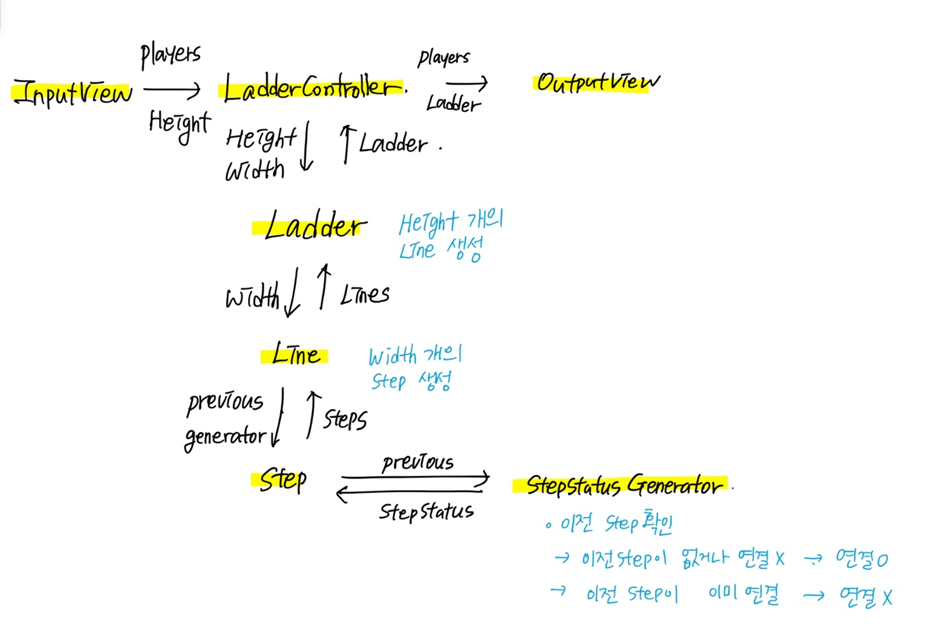 Players
Players
InputView
LadderController.
OutputView
Height
Ladder
Height
Width
Ladder.
Ladder
Height 개의
Line 생성
Width
Lines
Line
Width 개의
Step 생성
previous
generator
Steps
Step
previous
StepStatus
StepStatus Generator.
• 이전 Step 확인
→ 이전 Step이 없거나 연결 X → 연결 O
→ 이전 Step이 이미 연결 → 연결 X